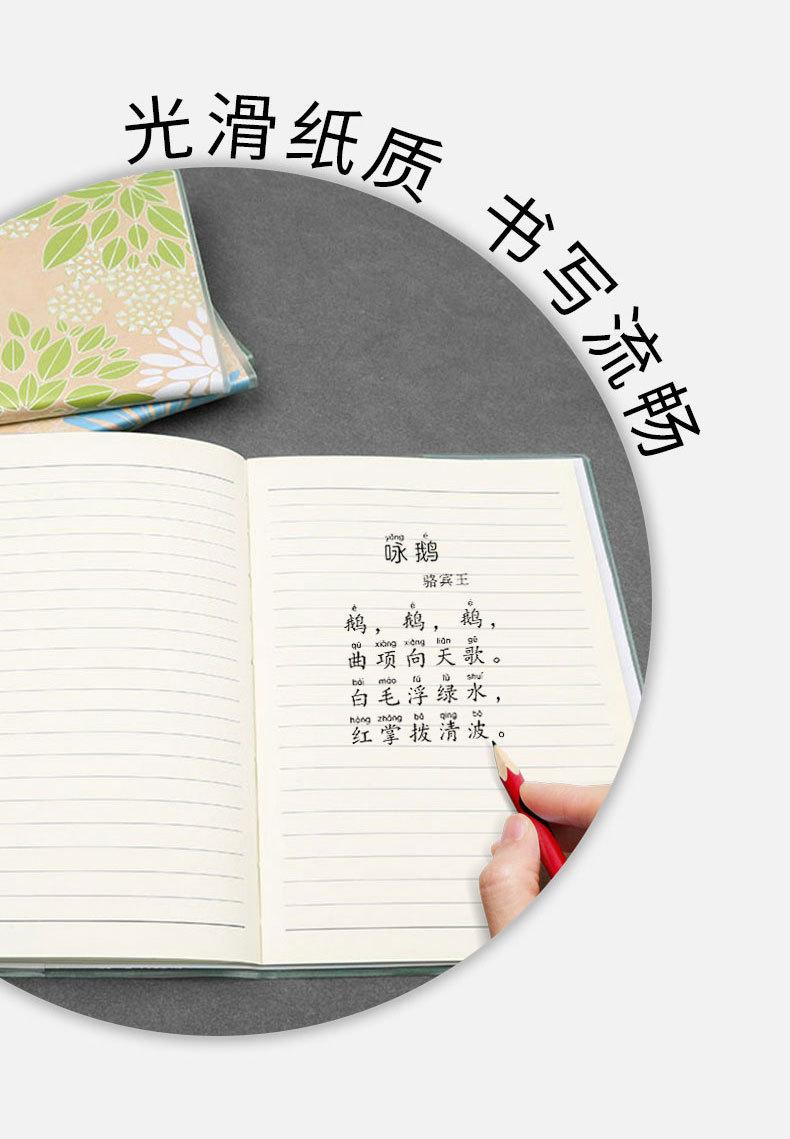 光滑纸质 书写流畅
yǒng é
咏鹅
骆宾王
é é é
鹅，鹅，鹅，
qū xiàng xiàng tiān gē
曲项向天歌。
bái máo fú lǜ shuǐ
白毛浮绿水，
hóng zhǎng bō qīng bō
红掌拨清波。